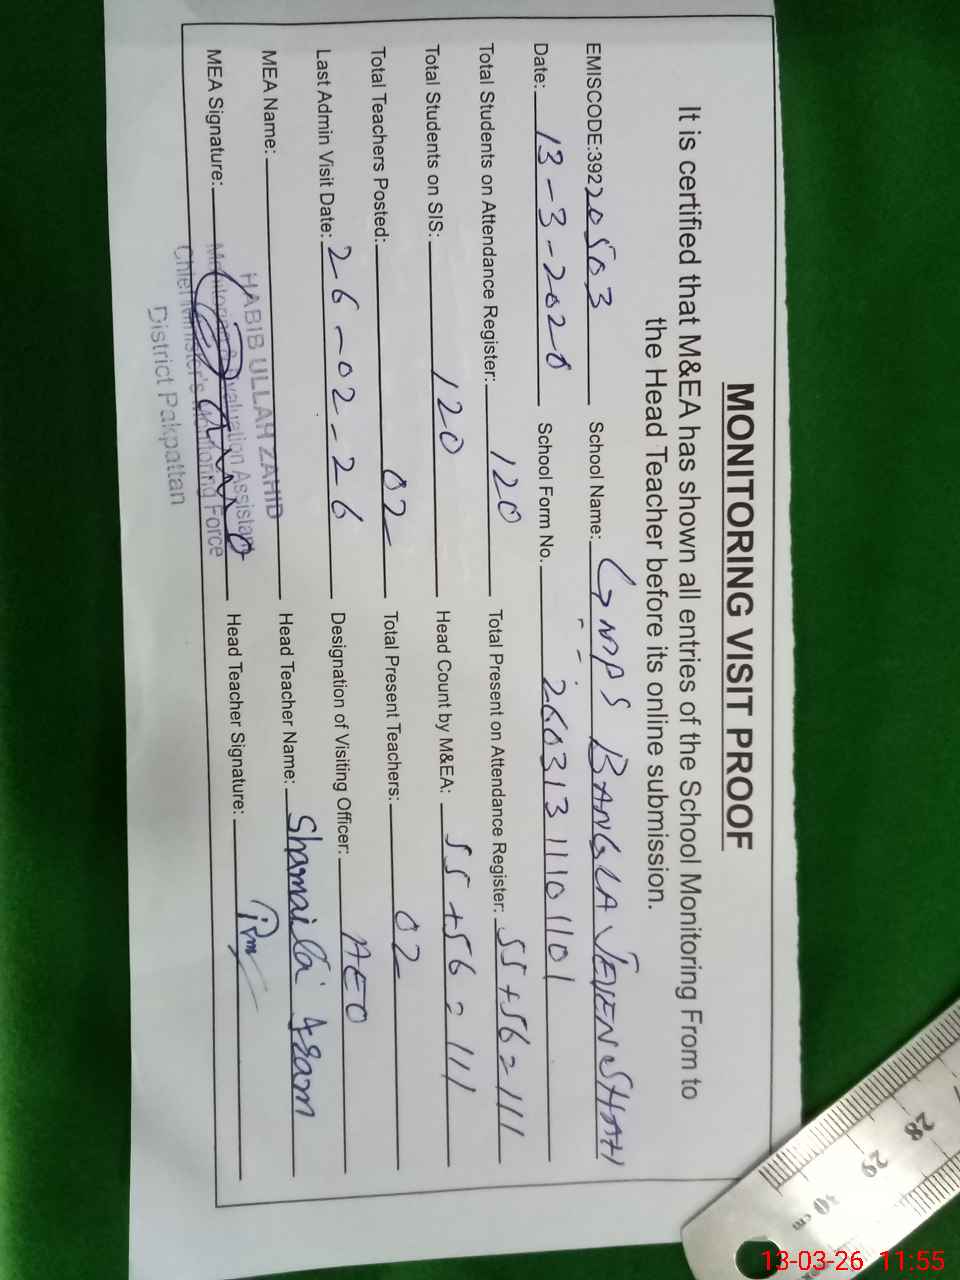 MONITORING VISIT PROOF
It is certified that M&EA has shown all entries of the School Monitoring From to
the Head Teacher before its online submission.
EMISCODE:39220503 School Name: GMPS BANGLA JEVEN SHAH
Date: 13-3-2026 School Form No. 2603131101101
Total Students on Attendance Register: 120 Total Present on Attendance Register: 55+56=111
Total Students on SIS: 120 Head Count by M&EA: 55+56=111
Total Teachers Posted: 02 Total Present Teachers: 02
Last Admin Visit Date: 26-02-26 Designation of Visiting Officer: AEO
MEA Name: Head Teacher Name: Shamaila
HABIB ULLAH ZAHID
MEA Signature: Head Teacher Signature:
Monitoring & Evaluation Assistant
Chief Minister's Monitoring Force
District Pakpattan
28
29
30 cm
13-03-26 11:55